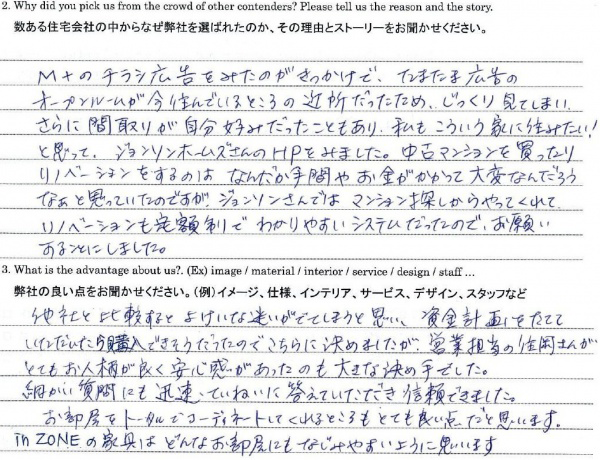 2. Why did you pick us from the crowd of other contenders? Please tell us the reason and the story.
数ある住宅会社の中からなぜ弊社を選ばれたのか、その理由とストーリーをお聞かせください。
M+のチラシ広告をみたのがきっかけで、たまたま広告の
オープンルームが今住んでいるところの近所だったため、じっくり見てしまい、
さらに間取りが自分好みだったこともあり、私もこういう家に住みたい!
と思って、ジョンソンホームズさんのHPをみました。中古マンションを買ったり
リノベーションをするのは なんだか手間やお金がかかって大変なんだろう
なぁと思っていたのですが、ジョンソンさんでは マンション探しからやってくれて、
リノベーションも定額制でわかりやすいシステムだったので、お願い
することにしました。
3. What is the advantage about us?. (Ex) image / material / interior / service / design / staff ...
弊社の良い点をお聞かせください。(例)イメージ、仕様、インテリア、サービス、デザイン、スタッフなど
他社と比較すると よけいな迷いがでてしまうと思い、資金計画をたてて
いただいたら購入できそうだったのでこちらに決めましたが、営業担当の住岡さんが
とてもお人柄が良く安心感があったのも大きな決め手でした。
細かい質問にも迅速、ていねいに答えていただき信頼できました。
お部屋をトータルでコーディネートしてくれるところもとても良い点だと思います。
in ZONEの家具はどんなお部屋にもなじみやすいように思います